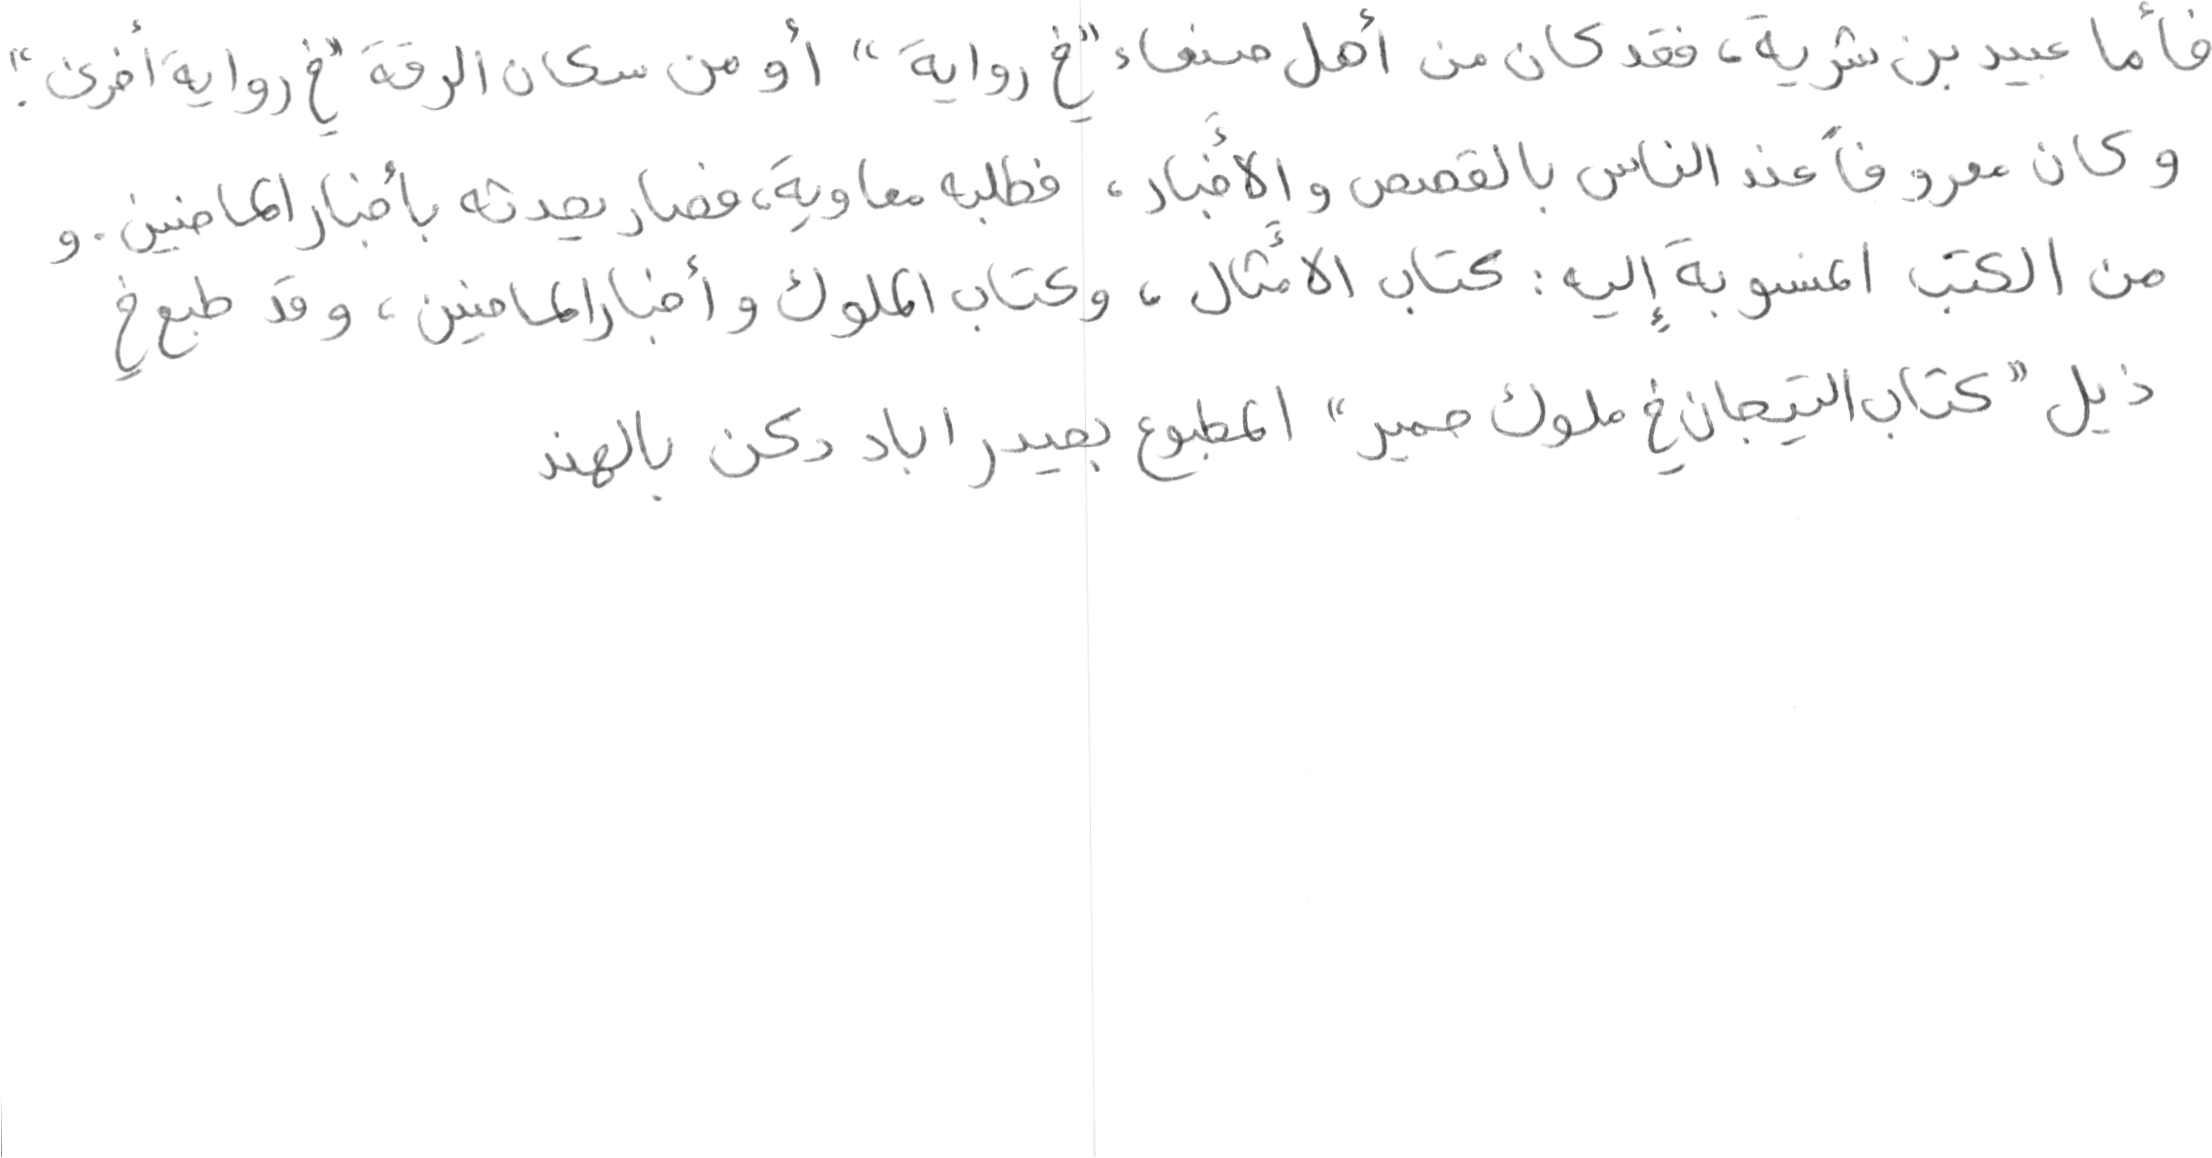 فأما عبيد بن شرية، فقد كان من أهل صنعاء "في رواية" أو من سكان الرقة "في رواية أخرى"؛
وكان معروفاً عند الناس بالقصص والأخبار، فطلبه معاوية، فصار يحدثه بأخبار الماضين. و
من الكتب المنسوبة إليه: كتاب الأمثال، وكتاب الملوك وأخبار الماضين، وقد طبع في
ذيل "كتاب التيجان في ملوك حمير" المطبوع بحيدر اباد دكن بالهند